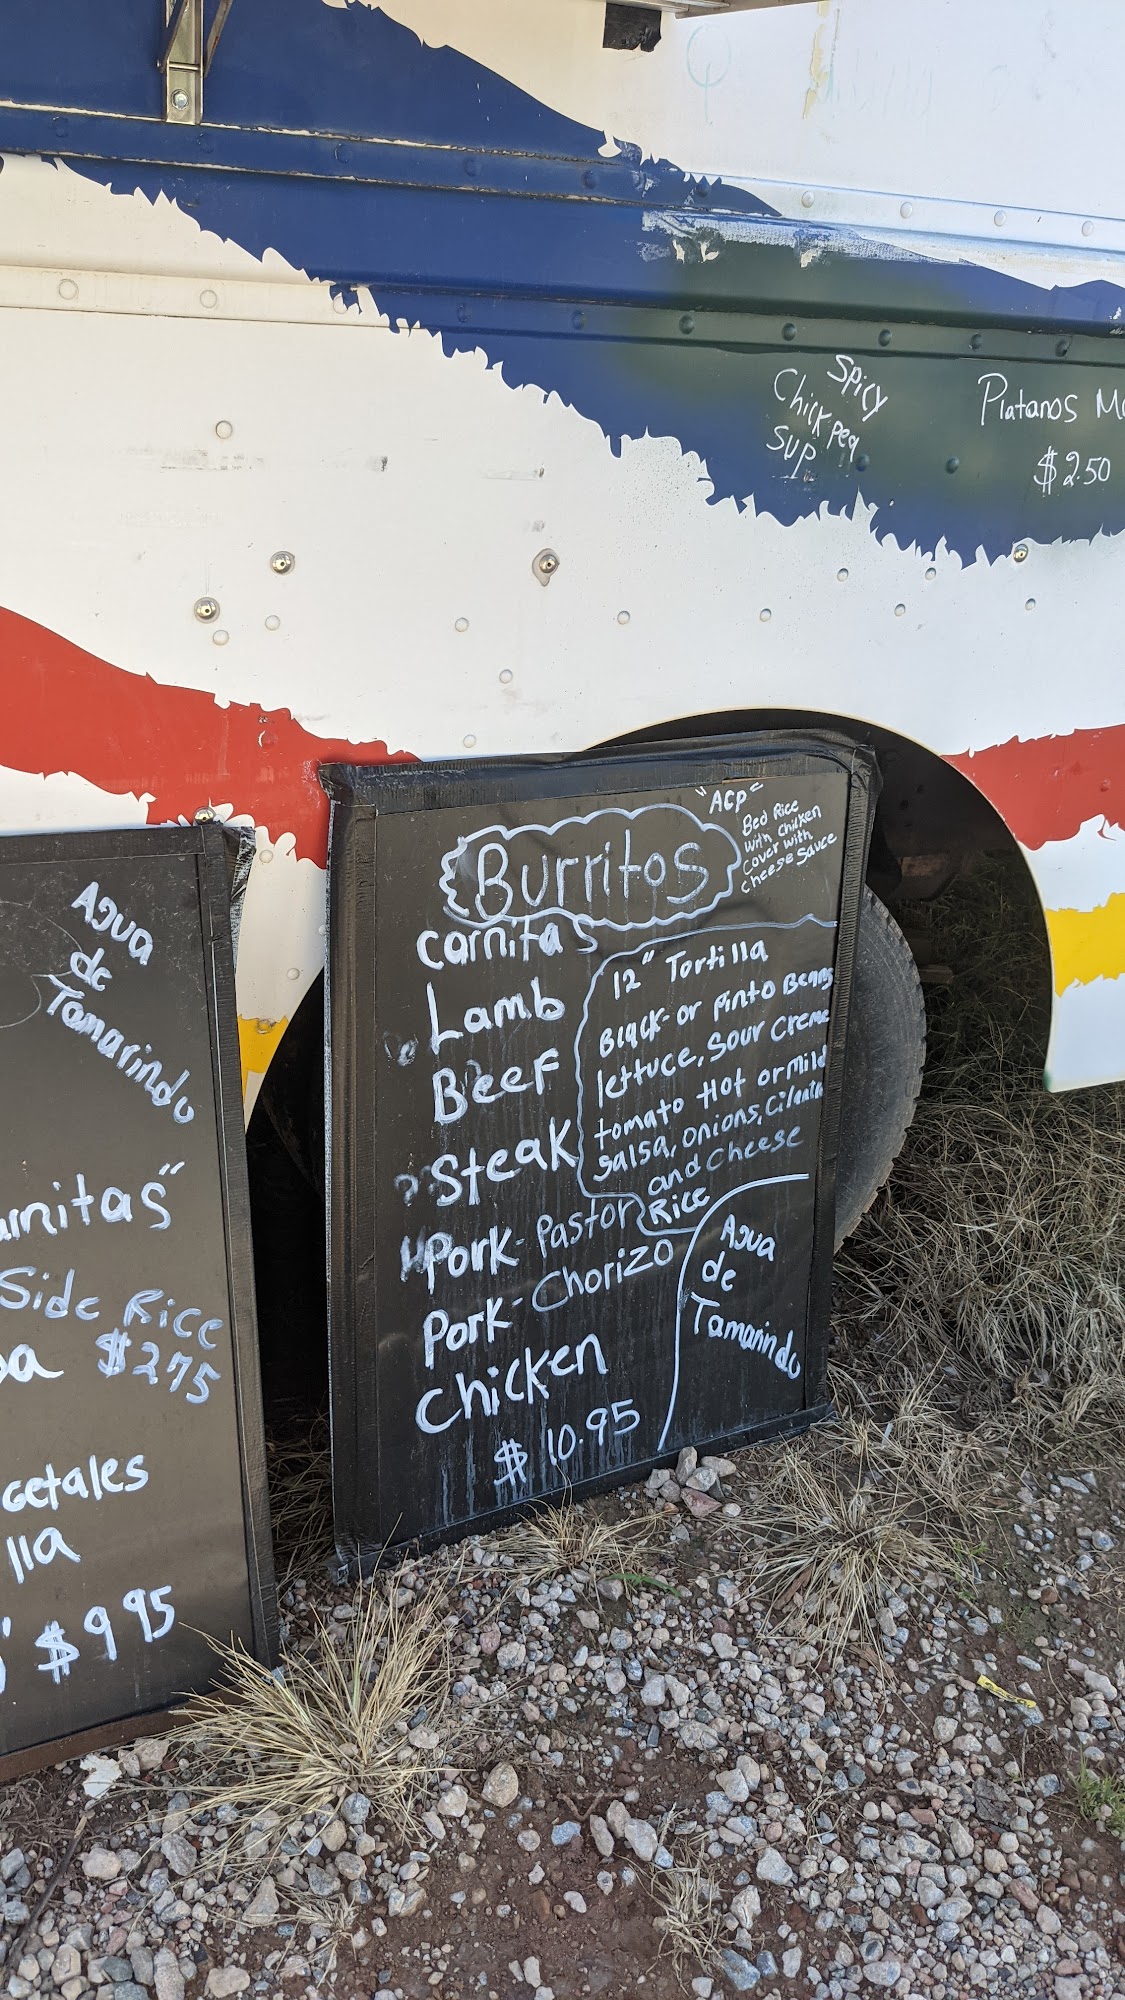 Spicy
Chickpea
Sup
Platanos
$2.50
"ACP"
Bed Rice
with Chiken
cover with
cheese Sauce
Burritos
carnitas
Lamb
Beef
Steak
Pork-Pastor
Pork-Chorizo
Chicken
$10.95
12" Tortilla
Black-or Pinto Beans
lettuce, Sour Creme
tomato Hot or Mild
Salsa, onions, Cilantro
and Cheese
Rice
Agua
de
Tamarindo
Agua
de
Tamarindo
Side Rice
$275
$9.95